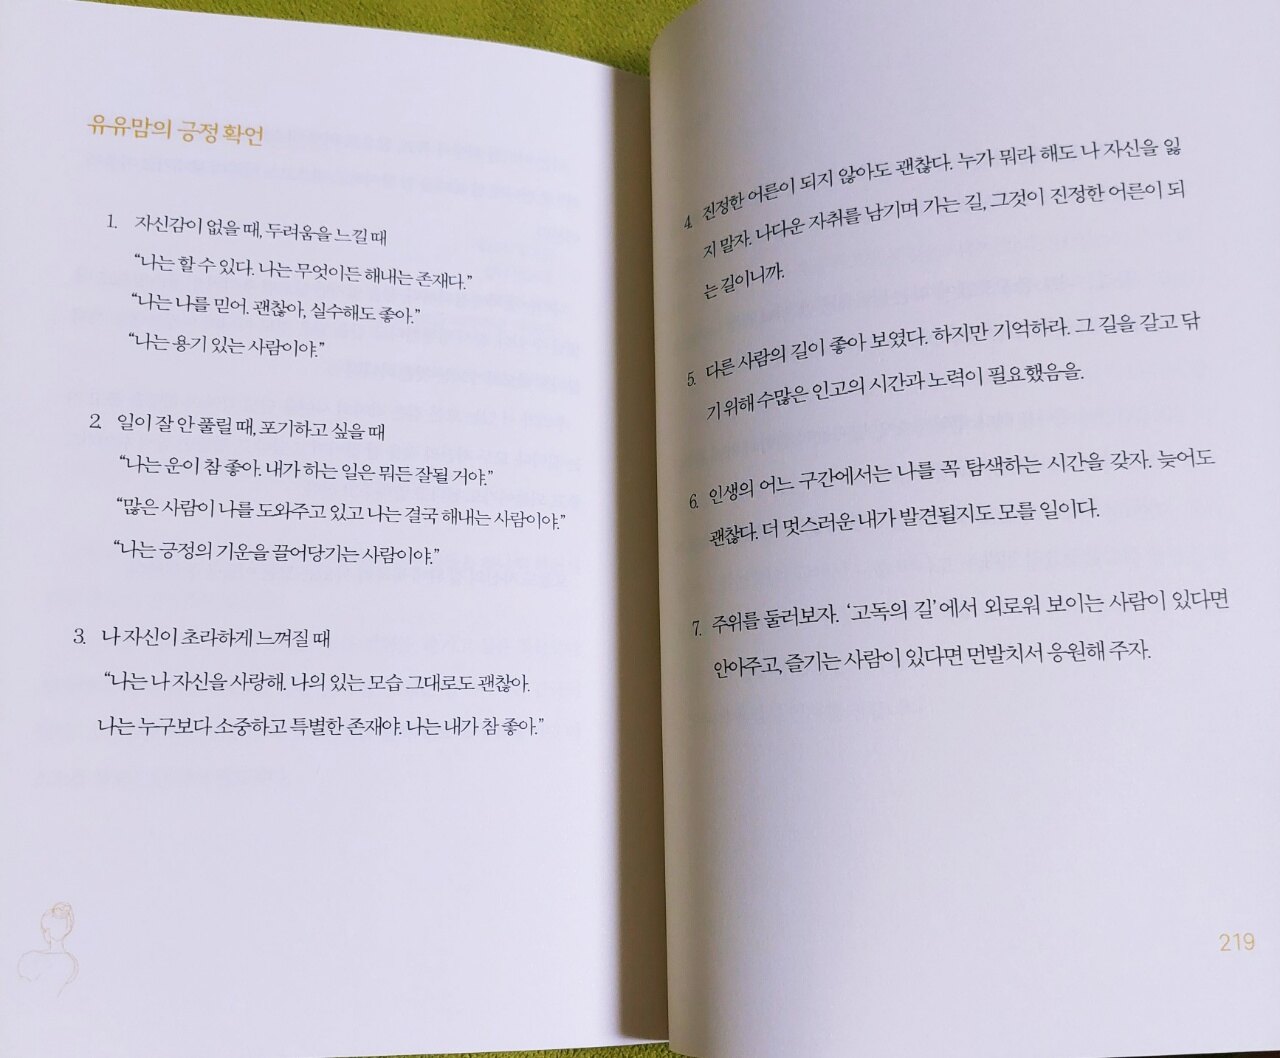 유유맘의 긍정 확언
1. 자신감이 없을 때, 두려움을 느낄 때
“나는 할 수 있다. 나는 무엇이든 해내는 존재다.”
“나는 나를 믿어. 괜찮아, 실수해도 좋아.”
“나는 용기 있는 사람이야.”
2. 일이 잘 안 풀릴 때, 포기하고 싶을 때
“나는 운이 참 좋아. 내가 하는 일은 뭐든 잘될 거야.”
“많은 사람이 나를 도와주고 있고 나는 결국 해내는 사람이야.”
“나는 긍정의 기운을 끌어당기는 사람이야.”
3. 나 자신이 초라하게 느껴질 때
“나는 나 자신을 사랑해. 나의 있는 모습 그대로도 괜찮아.
나는 누구보다 소중하고 특별한 존재야. 나는 내가 참 좋아.”
4. 진정한 어른이 되지 않아도 괜찮다. 누가 뭐라 해도 나 자신을 잃
지 말자. 나다운 자취를 남기며 가는 길, 그것이 진정한 어른이 되
는 길이니까.
5. 다른 사람의 길이 좋아 보였다. 하지만 기억하라. 그 길을 갈고 닦
기 위해 수많은 인고의 시간과 노력이 필요했음을.
6. 인생의 어느 구간에서는 나를 꼭 탐색하는 시간을 갖자. 늦어도
괜찮다. 더 멋스러운 내가 발견될지도 모를 일이다.
7. 주위를 둘러보자. ‘고독의 길’에서 외로워 보이는 사람이 있다면
안아주고, 즐기는 사람이 있다면 먼발치서 응원해 주자.
219